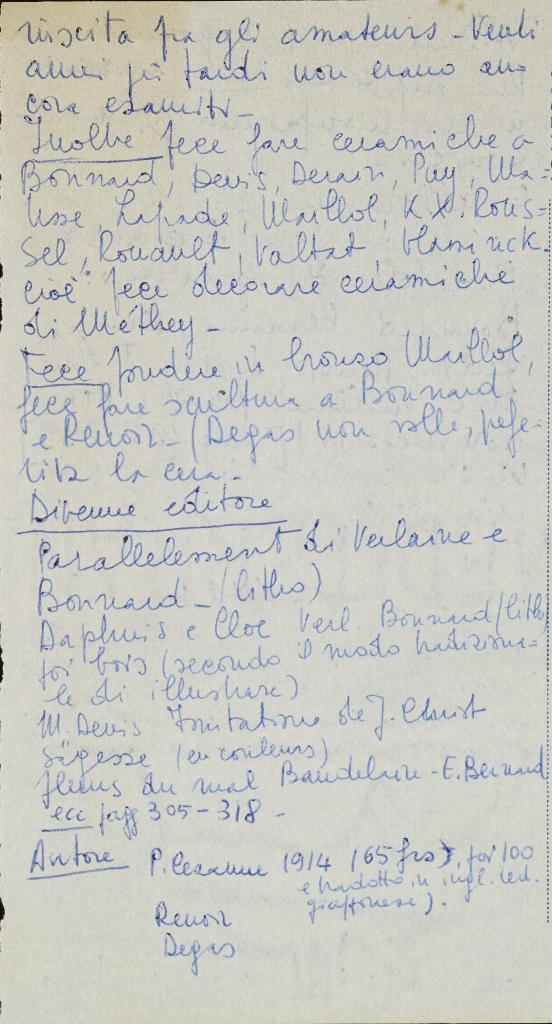 riuscita fra gli amateurs - Venti
anni più tardi non erano an
cora esauriti -
Inoltre fece fare ceramiche a
Bonnard, Denis, Derain, Puy, Ma=
tisse, Laprade, Maillol, K.X. Rous=
sel, Rouault, Valtat, Vlaminck
cioè fece decorare ceramiche
di Méthey -
Fece fondere in bronzo Maillol,
fece fare scultura a Bonnard
e Renoir - (Degas non volle, prefe-
riva la cera -
Divenne editore
Parallelement di Verlaine e
Bonnard - (litho)
Daphnis e Cloe Bonnard (litho)
poi bois (secondo il modo tradiziona=
le di illustrare)
M. Denis Imitation de J. Christ
Sagesse (en couleurs)
fleurs du mal Baudelaire - E. Bernard
ecc pagg 305 - 318 -
Autore P. Cezanne 1914 (65 frs), poi 100
e tradotto in ingl. ted.
giapponese).
Renoir
Degas